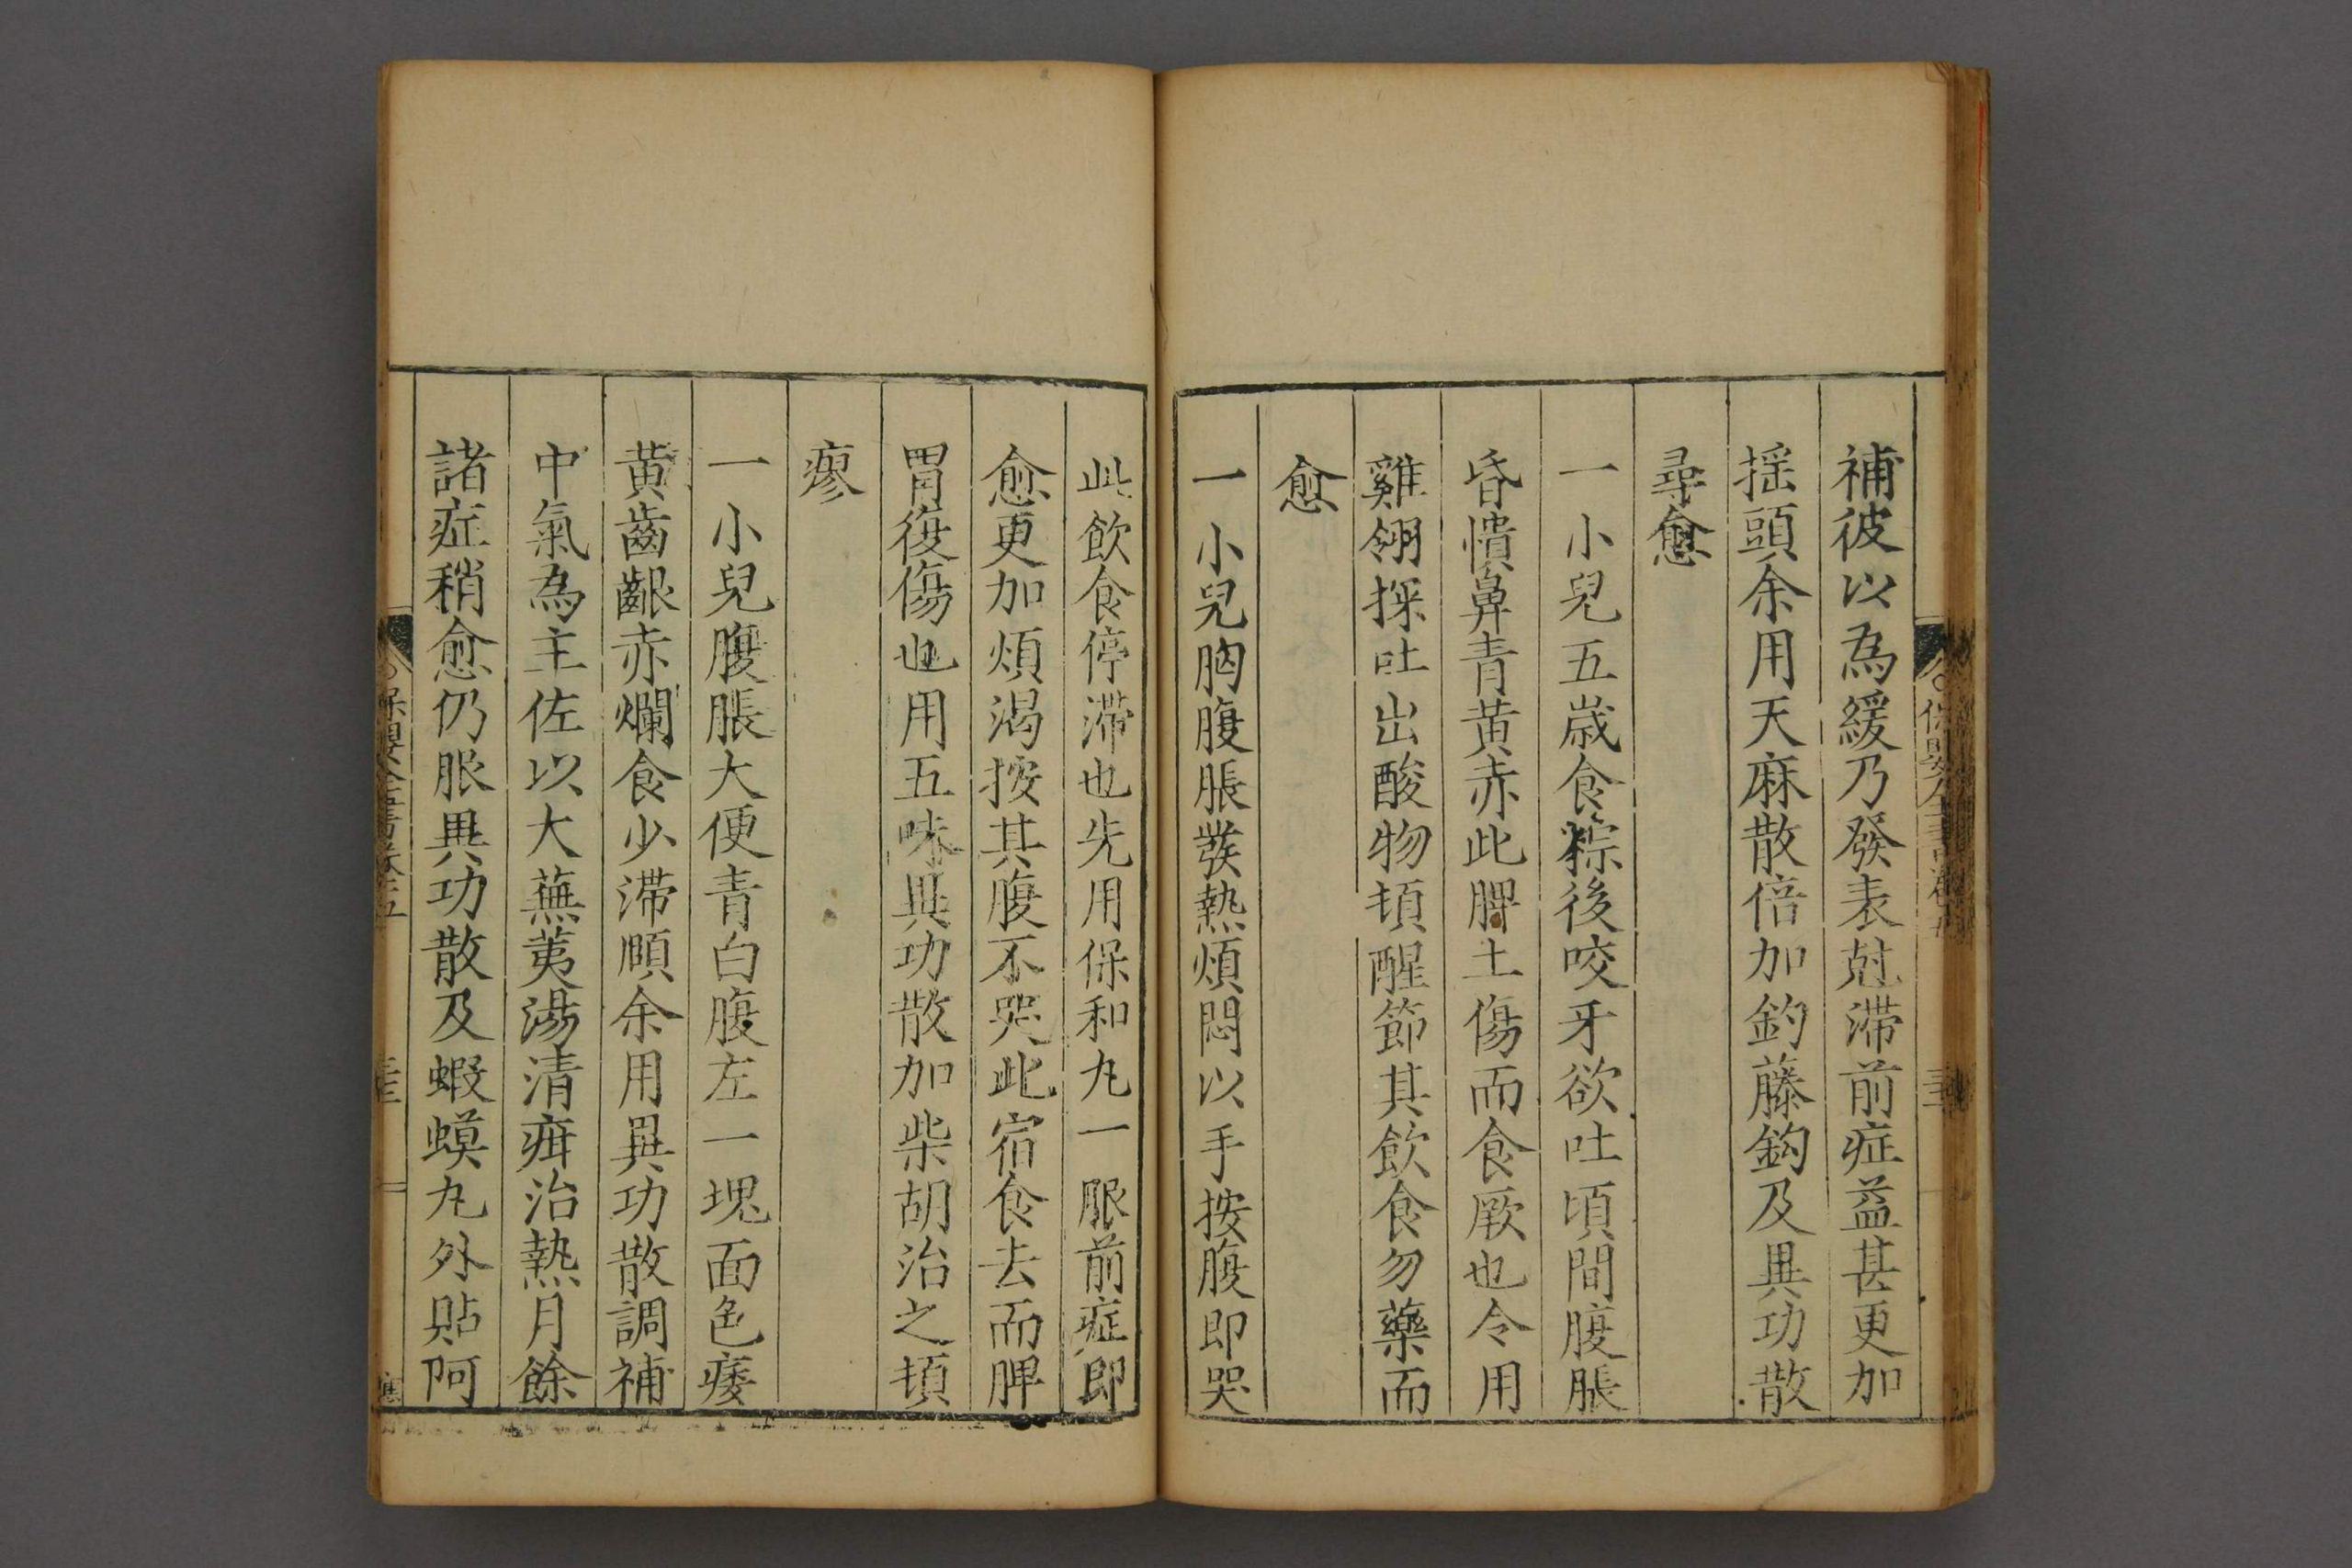 補彼以為緩乃發表尅滯前症益甚更加
搖頭余用天麻散倍加釣藤鈎及異功散
尋愈
一小兒五歲食粽後咬牙欲吐頃間腹脹
昏憒鼻青黃赤此脾土傷而食厥也令用
雞翎探吐出酸物頓醒節其飲食勿藥而
愈
一小兒胸腹脹發熱煩悶以手按腹即哭
此飲食停滯也先用保和丸一服前症即
愈更加煩渴按其腹不哭此宿食去而脾
胃復傷也用五味異功散加柴胡治之頓
瘳
一小兒腹脹大便青白腹左一塊面色痿
黃齒齦赤爛食少滯頤余用異功散調補
中氣為主佐以大蕪荑湯清疳治熱月餘
諸症稍愈仍服異功散及蝦蟆丸外貼阿
保嬰全書卷五